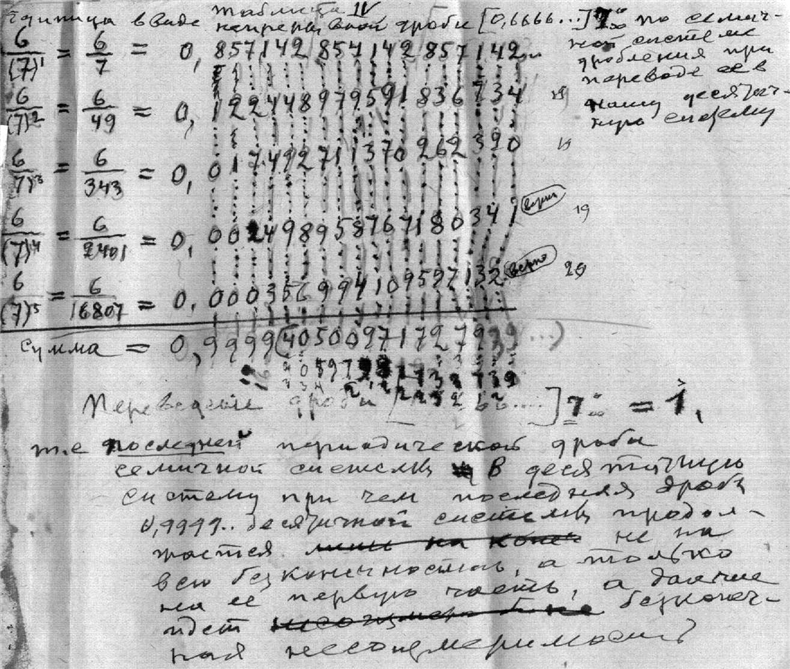 Таблица IV
Единица в виде непрерывной дроби [0,6666...]7 по семич-
ной системе
дробления при
переводе ее в
нашу десятич-
ную систему
6/(7)¹ = 6/7 = 0,857142857142857142...
6/(7)² = 6/49 = 0,122448979591836734
6/(7)³ = 6/343 = 0,017492711370262390
6/(7)⁴ = 6/2401 = 0,002498958767180341 верно 19
6/(7)⁵ = 6/16807 = 0,000356994109597132 верно 20
Сумма = 0,9999(40500971727939...)
Переведение дроби ]7 = 1,
т.е последней периодической дроби
семичной системы в десятичную
систему при чем последняя дробь
0,9999.. десятичной системы продол-
жается не на
всю безконечность, а только
на ее первую часть, а далее
идет безконеч-
ная несоизмеримость